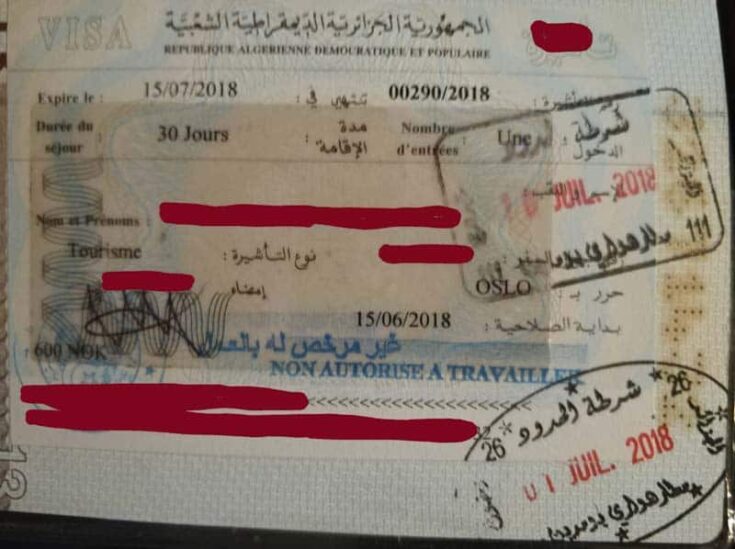 VISA
الجمهورية الجزائرية الديمقراطية الشعبية
REPUBLIQUE ALGERIENNE DEMOCRATIQUE ET POPULAIRE
Expire le : 15/07/2018 تنتهي في : 00290/2018
Durée du séjour 30 Jours مدة الإقامة : Nombre d'entrées Une الدخول
شرطة
JUIL. 2018
Nom et Prénoms :
مطار هواري 111
Tourisme نوع التأشيرة :
إمضاء OSLO حرر بـ :
15/06/2018 بداية الصلاحية :
600 NOK غير مرخص له بالعمل
NON AUTORISE A TRAVAILLER
<<<<<<<<<<
26 شرطة الحدود 26
الجزائر
01 JUIL. 2018
مطار هواري بومدين
13